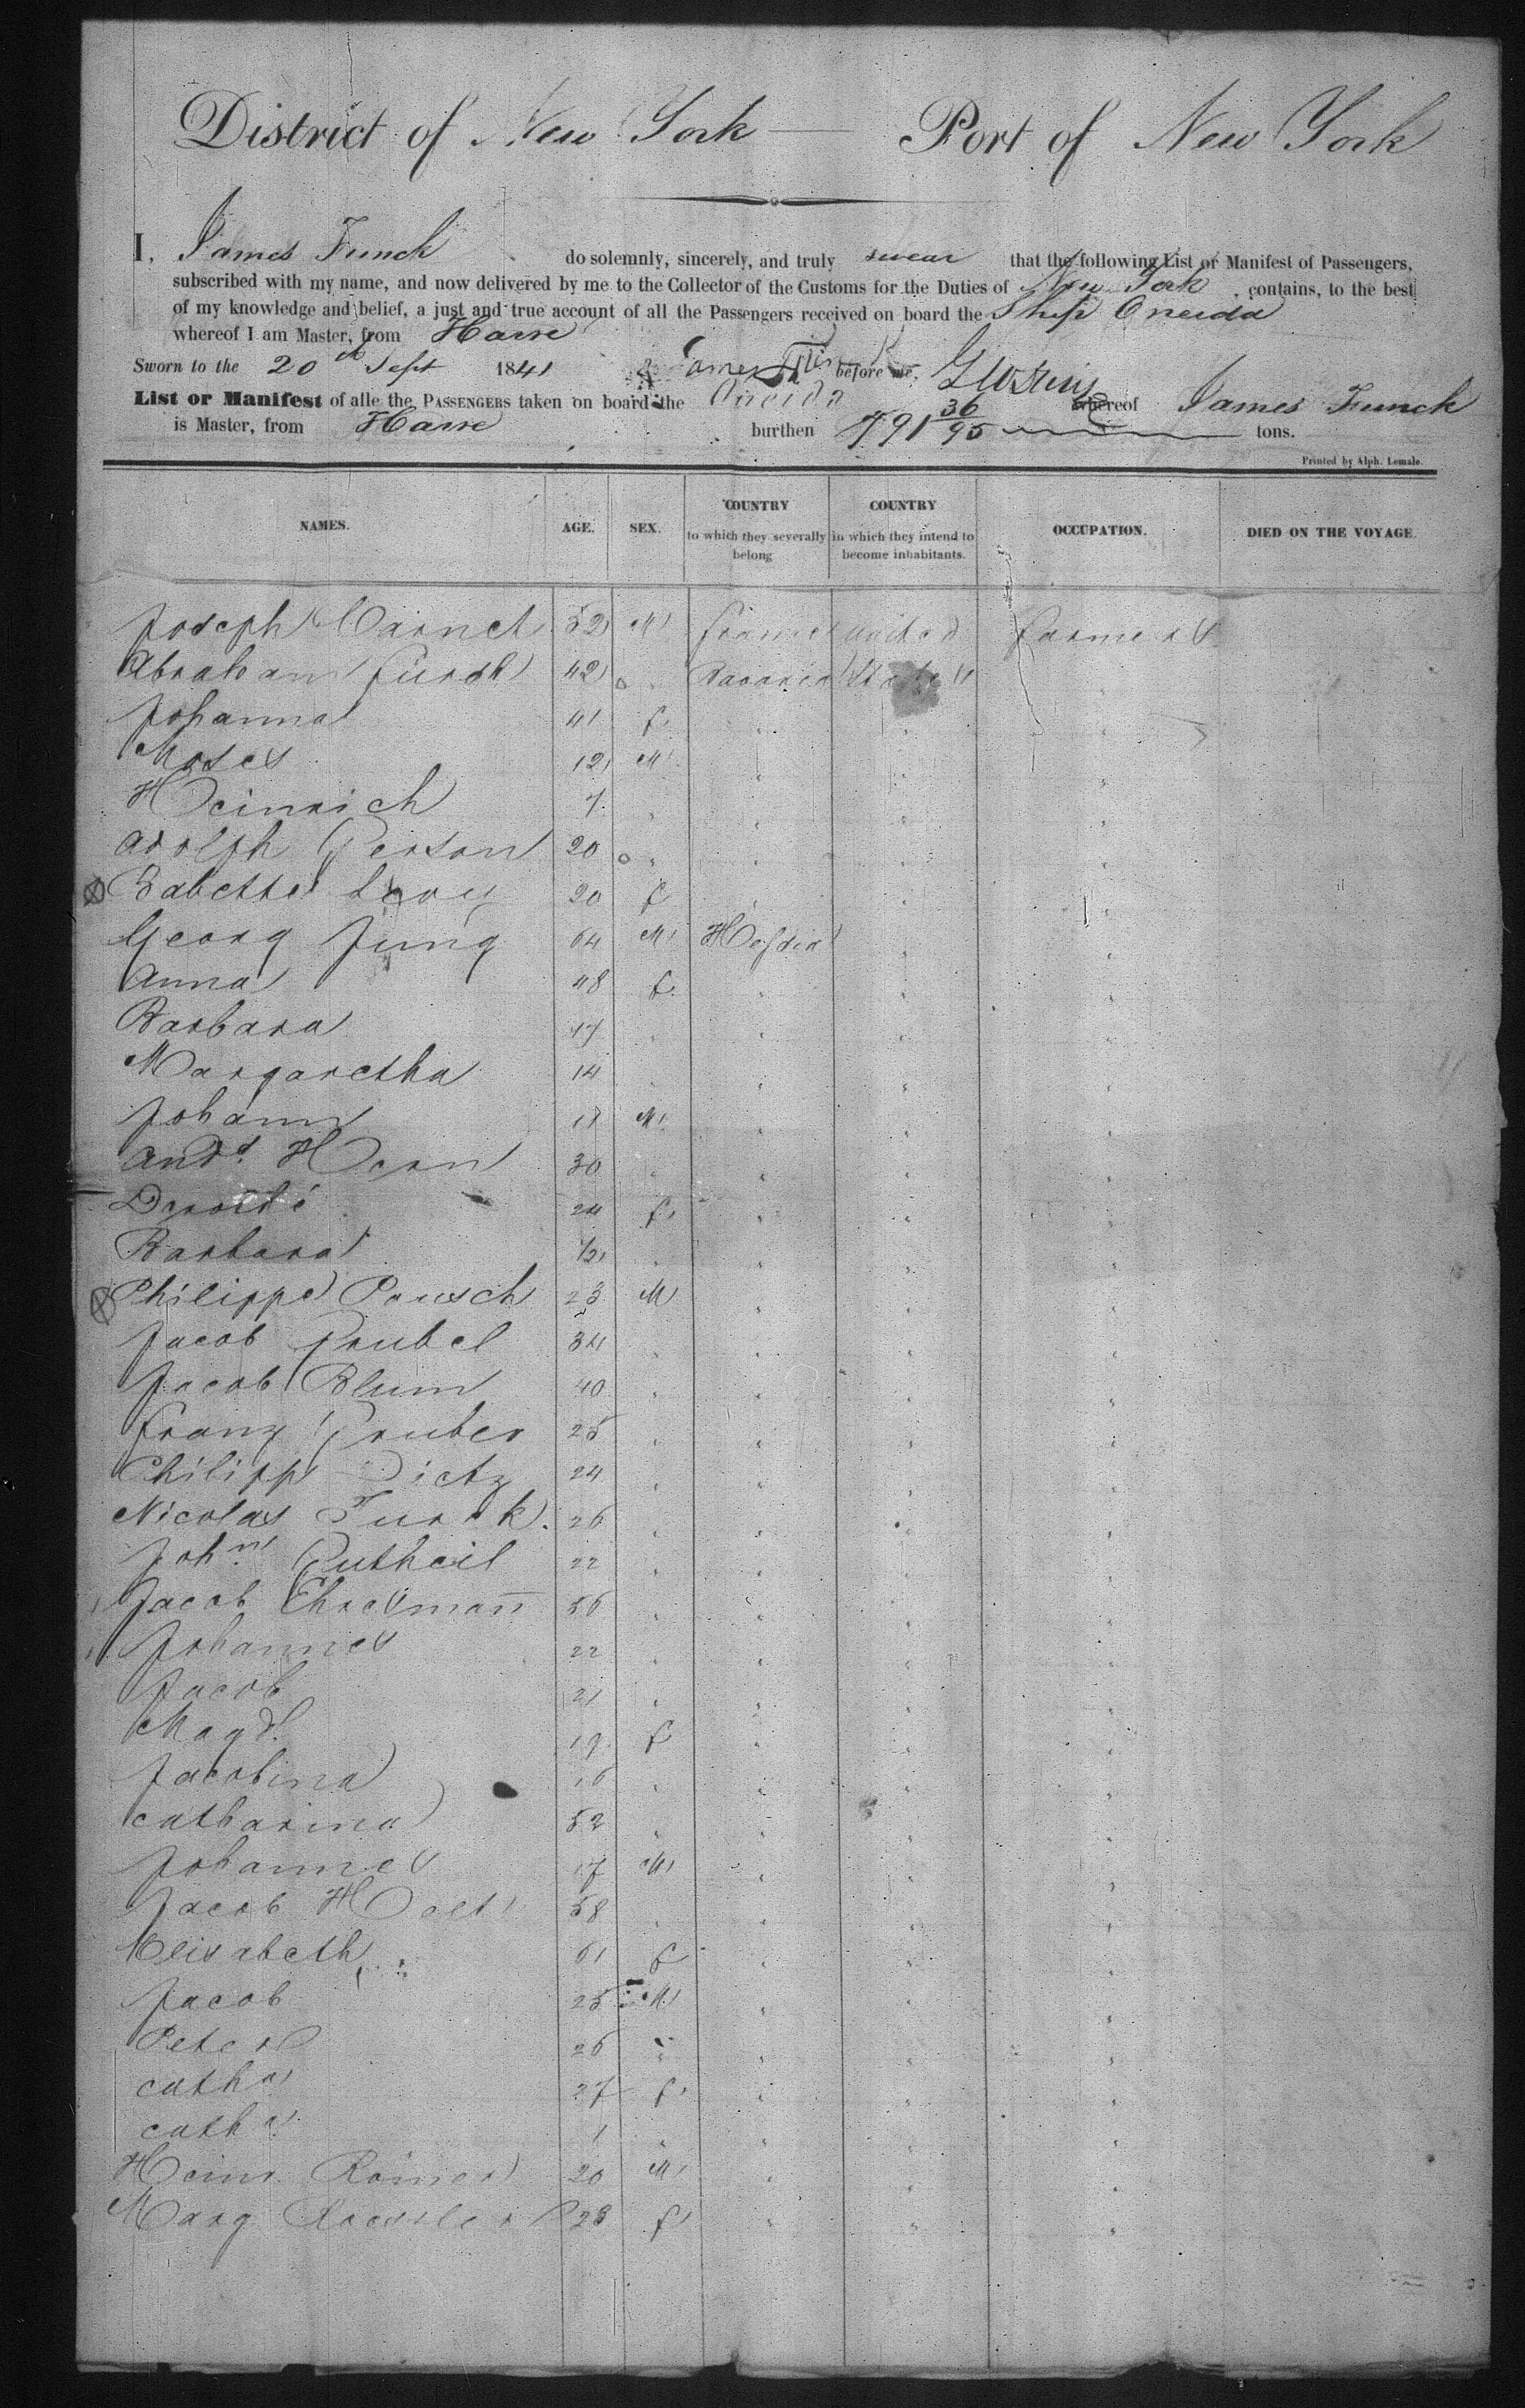 District of New York — Port of New York
I, James Funck do solemnly, sincerely, and truly swear that the following List or Manifest of Passengers,
subscribed with my name, and now delivered by me to the Collector of the Customs for the Duties of New York, contains, to the best
of my knowledge and belief, a just and true account of all the Passengers received on board the Ship Oneida
whereof I am Master, from Havre
Sworn to the 20th Sept 1841 James before me,
List or Manifest of alle the PASSENGERS taken on board the Oneida whereof James Funck
is Master, from Havre burthen 791 36/95 tons.
Printed by Alph. Lemale.
NAMES. AGE. SEX. COUNTRY to which they severally belong COUNTRY in which they intend to become inhabitants. OCCUPATION. DIED ON THE VOYAGE.
Joseph 52 M France United farmers
Abraham 42 " Bavaria States "
Johanna 41 f " " "
Moses 12 M " " "
Heinrich 7 " " " "
Adolph Gerson 20 " " " "
Babette Levy 20 f " " "
Georg Jung 64 M Hessia " "
Anna 48 f " " "
Barbara 17 " " " "
Margaretha 14 " " " "
Johann M " " "
Ands Horn 30 " " " "
24 f " " "
Barbara 1/2 " " " "
Philippe 23 M " " "
Jacob Grubel 34 " " " "
Jacob Blum 40 " " " "
Franz Gruber 25 " " " "
Philipp Dietz 24 " " " "
Nicolas Turck 26 " " " "
Johnn Gutheil 22 " " " "
Jacob Ehresmann 56 " " " "
Johannes 22 " " " "
Jacob 21 " " " "
Magd. 19 f " " "
Jacobina 16 " " " "
Catharina 52 " " " "
Johannes 17 M " " "
Jacob 58 " " " "
Elisabeth 61 f " " "
Jacob 25 M " " "
Peter 26 " " " "
Catha 27 f " " "
Catha 1 " " " "
Heinr. Römer 20 M " " "
Marg Roessler 23 f " " "